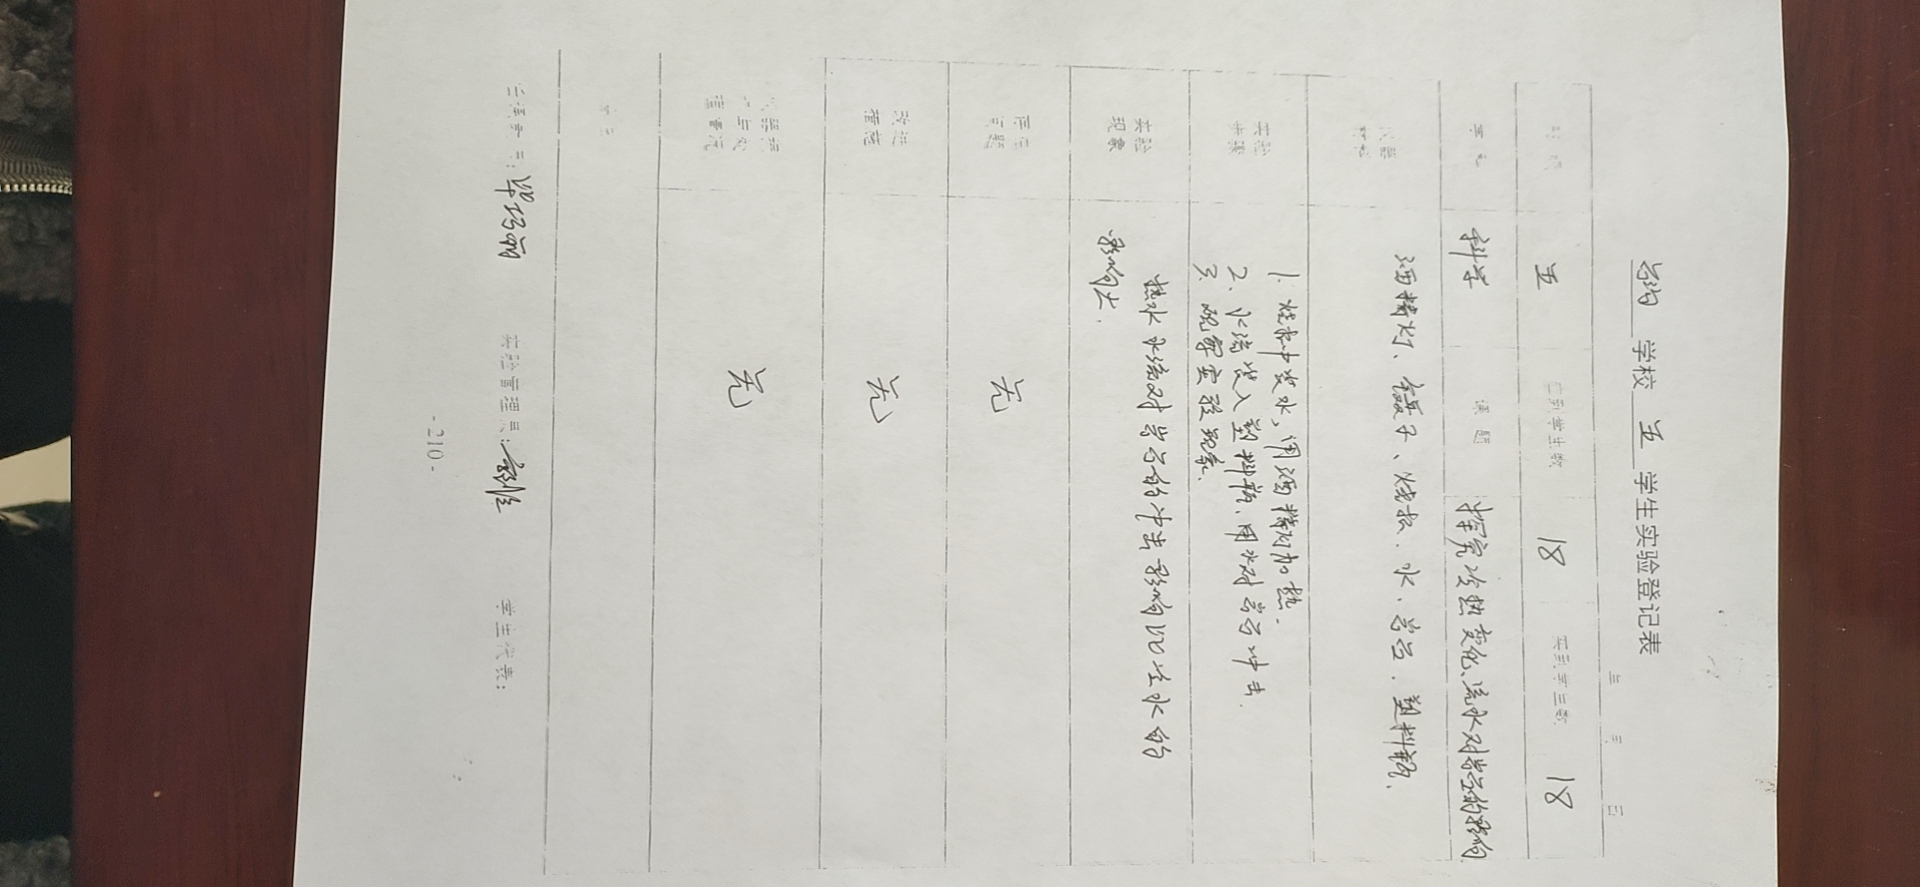 学校 五 学生实验登记表
年 月 日
五 应到学生数 18 实到学生数 18
学科 科学 课题 探究冷热变化、流水对岩石的影响
仪器材料 酒精灯、镊子、烧杯、水、岩石、塑料瓶、
实验步骤 1. 烧杯中装水,用酒精灯加热.
2、水流装入塑料瓶,用水对岩石冲击.
3. 观察实验现象.
实验现象 热水水流对岩石的冲击影响比冷水的
影响大.
存在问题 无
改进措施 无
无
任课教师:
实验管理员:
学生代表:
- 210 -